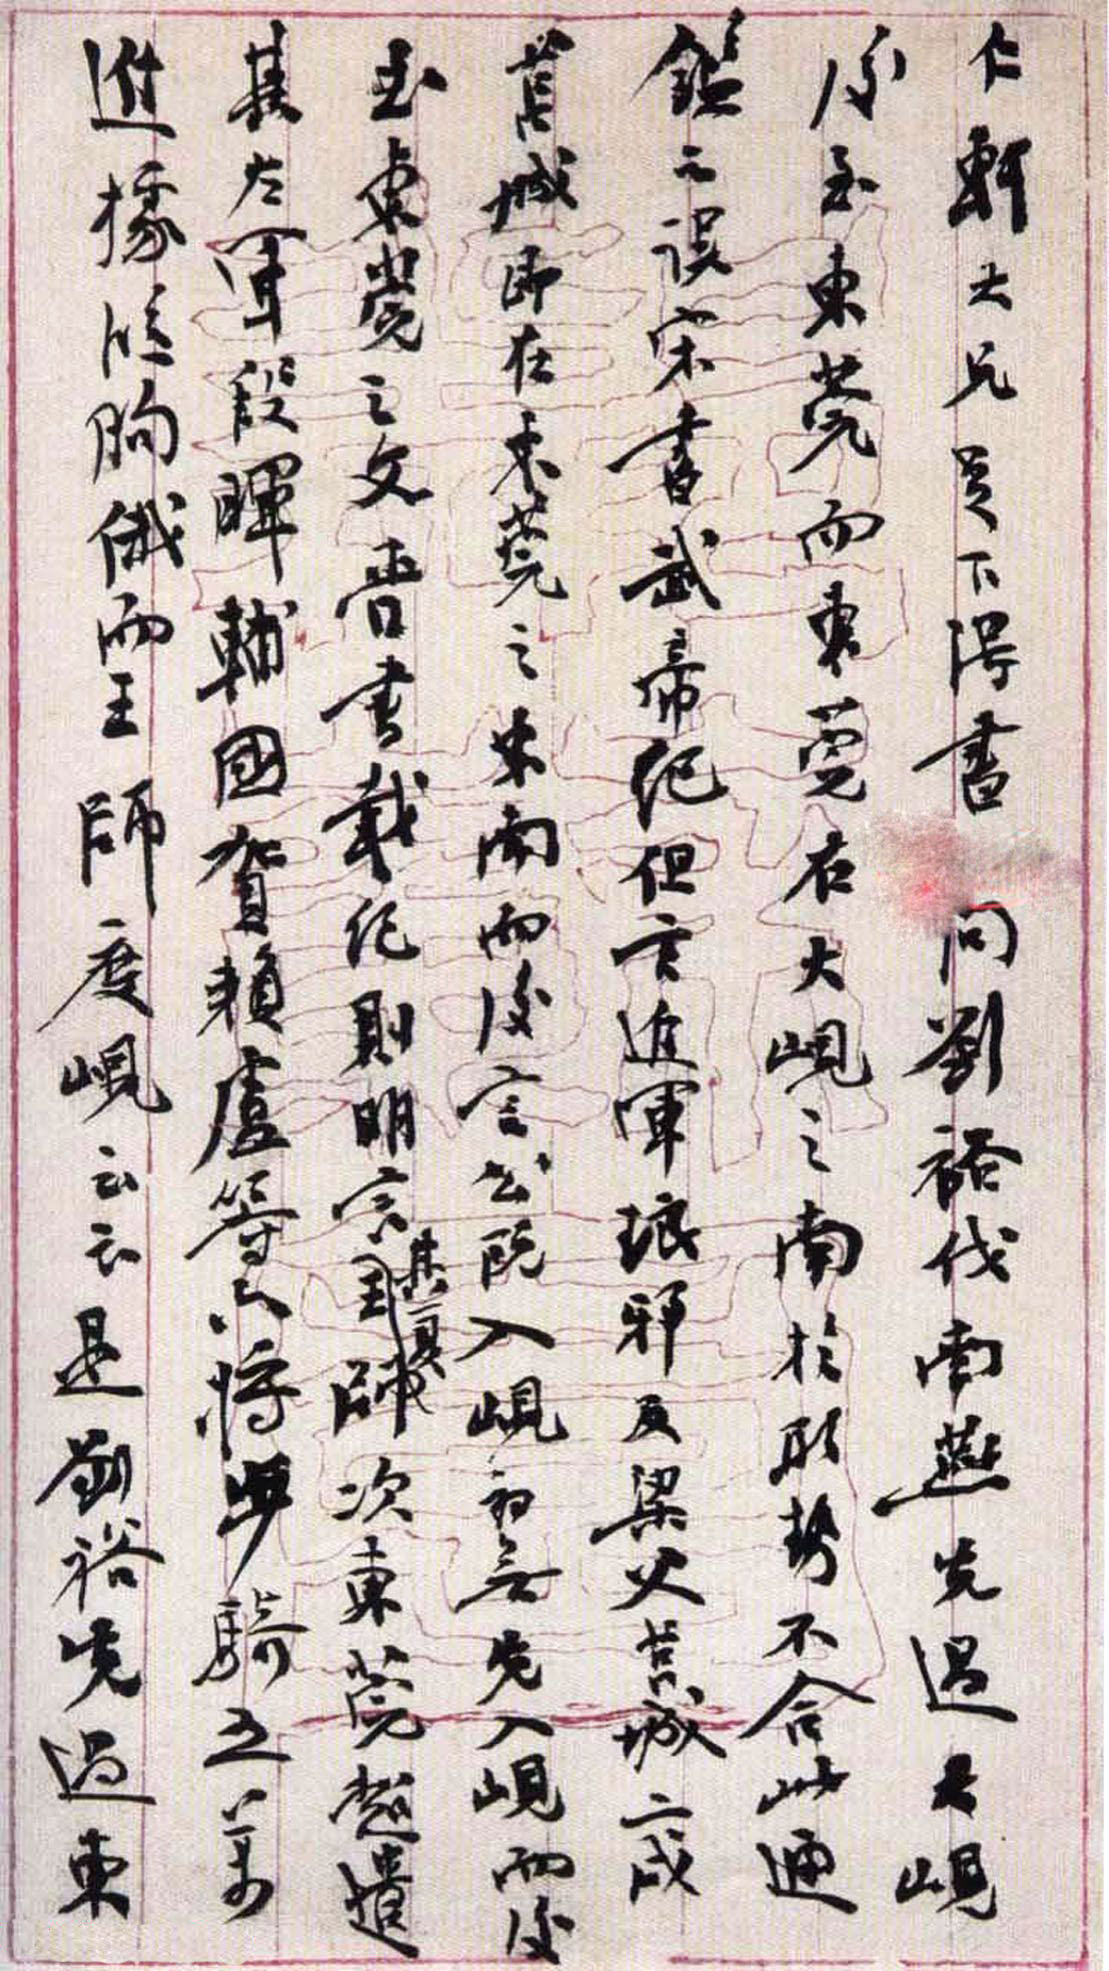 仁軒大兄足下得書 問劉裕伐南燕先過大峴
後至東莞而東莞在大峴之南於形勢不合此通
鑑之誤宋書武帝紀但言進軍琅邪及梁父莒城二戍
莒城即在東莞之東南而後言公既入峴初無先入峴而後
至東莞之文晉書載紀則明言王師次東莞超遣
其左軍段暉輔國賀賴盧等六將步騎五萬
進據臨朐俄而王師度峴云云是劉裕先過東